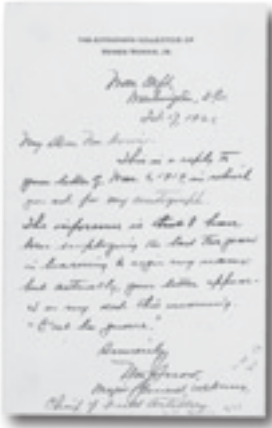 THE AUTOGRAPH COLLECTION OF
War Dept.
Washington, D.C.
Feb. 17, 192
My dear
This is a reply to
your letter of 1919 in which
you ask for my autograph.
The inference is that I have
been employing the last two years
in learning to sign my name
but actually, your letter appear-
ed on my desk this morning.
"C'est la guerre."
Sincerely,
Wm J Snow,
Major General
Chief of Field Artillery